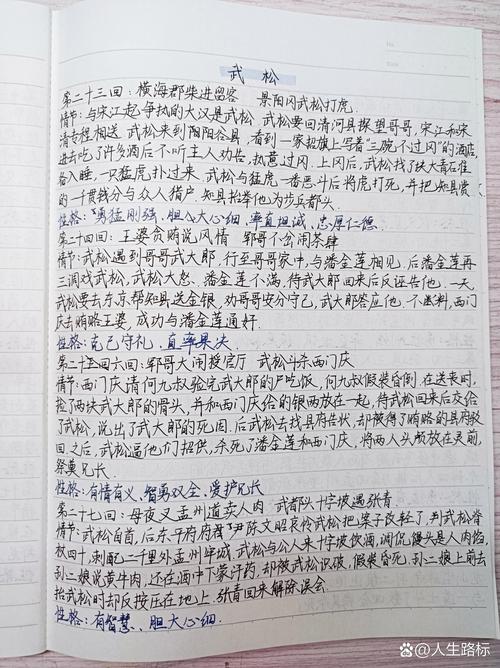 武松
第二十三回：横海郡柴进留客 景阳冈武松打虎
情节：与宋江起争执的大汉是武松。武松要回清河县探望哥哥，宋江和宋
清专程相送。武松来到阳谷县，看到一家招旗上写着“三碗不过冈”的酒店，
进去吃了许多酒后不听主人劝告，执意过冈。上冈后，武松找了块大青石准
备入睡，一只猛虎扑过来。武松与猛虎一番恶斗后将虎打死，并把知县赏
的一千贯钱分与众人猎户。知县抬举他为步兵都头。
性格：勇猛刚强、胆大心细、率直坦诚、忠厚仁德
第二十四回：王婆贪贿说风情 郓哥不忿闹茶肆
情节：武松遇到哥哥武大郎，行至哥哥家中，与潘金莲相见。后潘金莲再
三调戏武松，武松大怒，潘金莲不满，待武大郎回来后反诬告他。一天，
武松要去东京帮知县送金银，劝哥哥安分守己，武大郎答应他。不料，西门
庆去贿赂王婆，成功与潘金莲通奸.
性格：克己守礼、直率果决
第二十五回六回：郓哥大闹授官厅 武松斗杀西门庆
情节：西门庆请何九叔验完武大郎的尸吃饭，何九叔假装昏倒，在送丧时，
捡了两块武大郎的骨头，并和西门庆给的银两放在一起，待武松回来后交给
了武松，说出了武大郎的死因。后武松去找县府告状，却被得了贿赂的县府驳
回。之后，武松逼他们招供，杀死了潘金莲和西门庆，将两人头颅放在灵前，
祭奠兄长。
性格：有情有义、智勇双全、爱护兄长
第二十七回：母夜叉孟州道卖人肉 武都头十字坡遇张青
情节：武松自首，后东平府府尹陈文昭哀怜武松把案子改轻了，判武松脊
杖四十，刺配二千里外孟州牢城。武松与公人来十字坡饮酒，调侃馒头是人肉馅，
孙二娘说黄牛肉，还在酒中下蒙汗药，却被武松识破，假装昏死，孙二娘上前去
抬武松时却反按压在地上，张青回来解除误会
性格：有智慧、胆大心细.
百度@人生路标